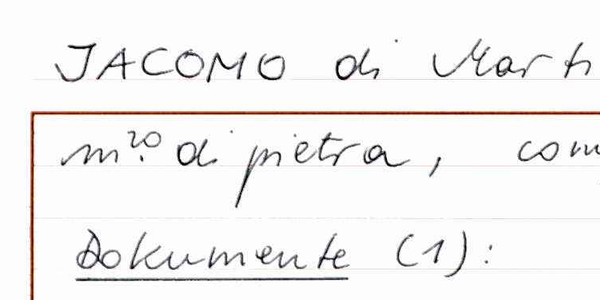 JACOMO di Marti
m.ro di pietra, com
Dokumente (1):